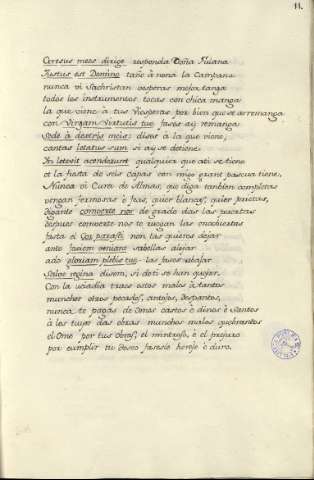 11.
Cersus meos dirige responda Doña Fulana
Justus est Domine tañe à nona la Campana
nunca vi Sachristan vesperas mejor tanga
todos los instrumentos tocas con chica manga
la que viene à tus Viesperas por bien que se arremanga
con Virgam virtutis tue fases ay remanga
Sede à dextris meis: dises à la que viene,
cantas letatus sum si ay se detiene
In letovit acondaunt qualquier que ati se tiene
et la fiesta de seis capas con migo grant pascua tiene,
Nunca vi Cura de Almas, que diga tambien completas
vengan fermosas è feas, quier blancas, quier prietas,
digante converte nos de grado das las puertas
despues converte nos te ruegan las encubiertas
fasta el Qos parasti non las quieres dejar
ante faciem omniam sabellas alejar
ado gloriam plebis tue las fases abajar
Salve regina disem, si de ti se han quejar.
Con la uciadia traes estos males à tantos
munchos otros pecados, antojos, despantos,
nunca te pagas de Omes castos è dinos è santos
à los tuyos das obras munchos males quebrantos
el Ome por tus obras, el mintroso, è el prejuro
por cumplir tu deseo faseslo hereje è duro.